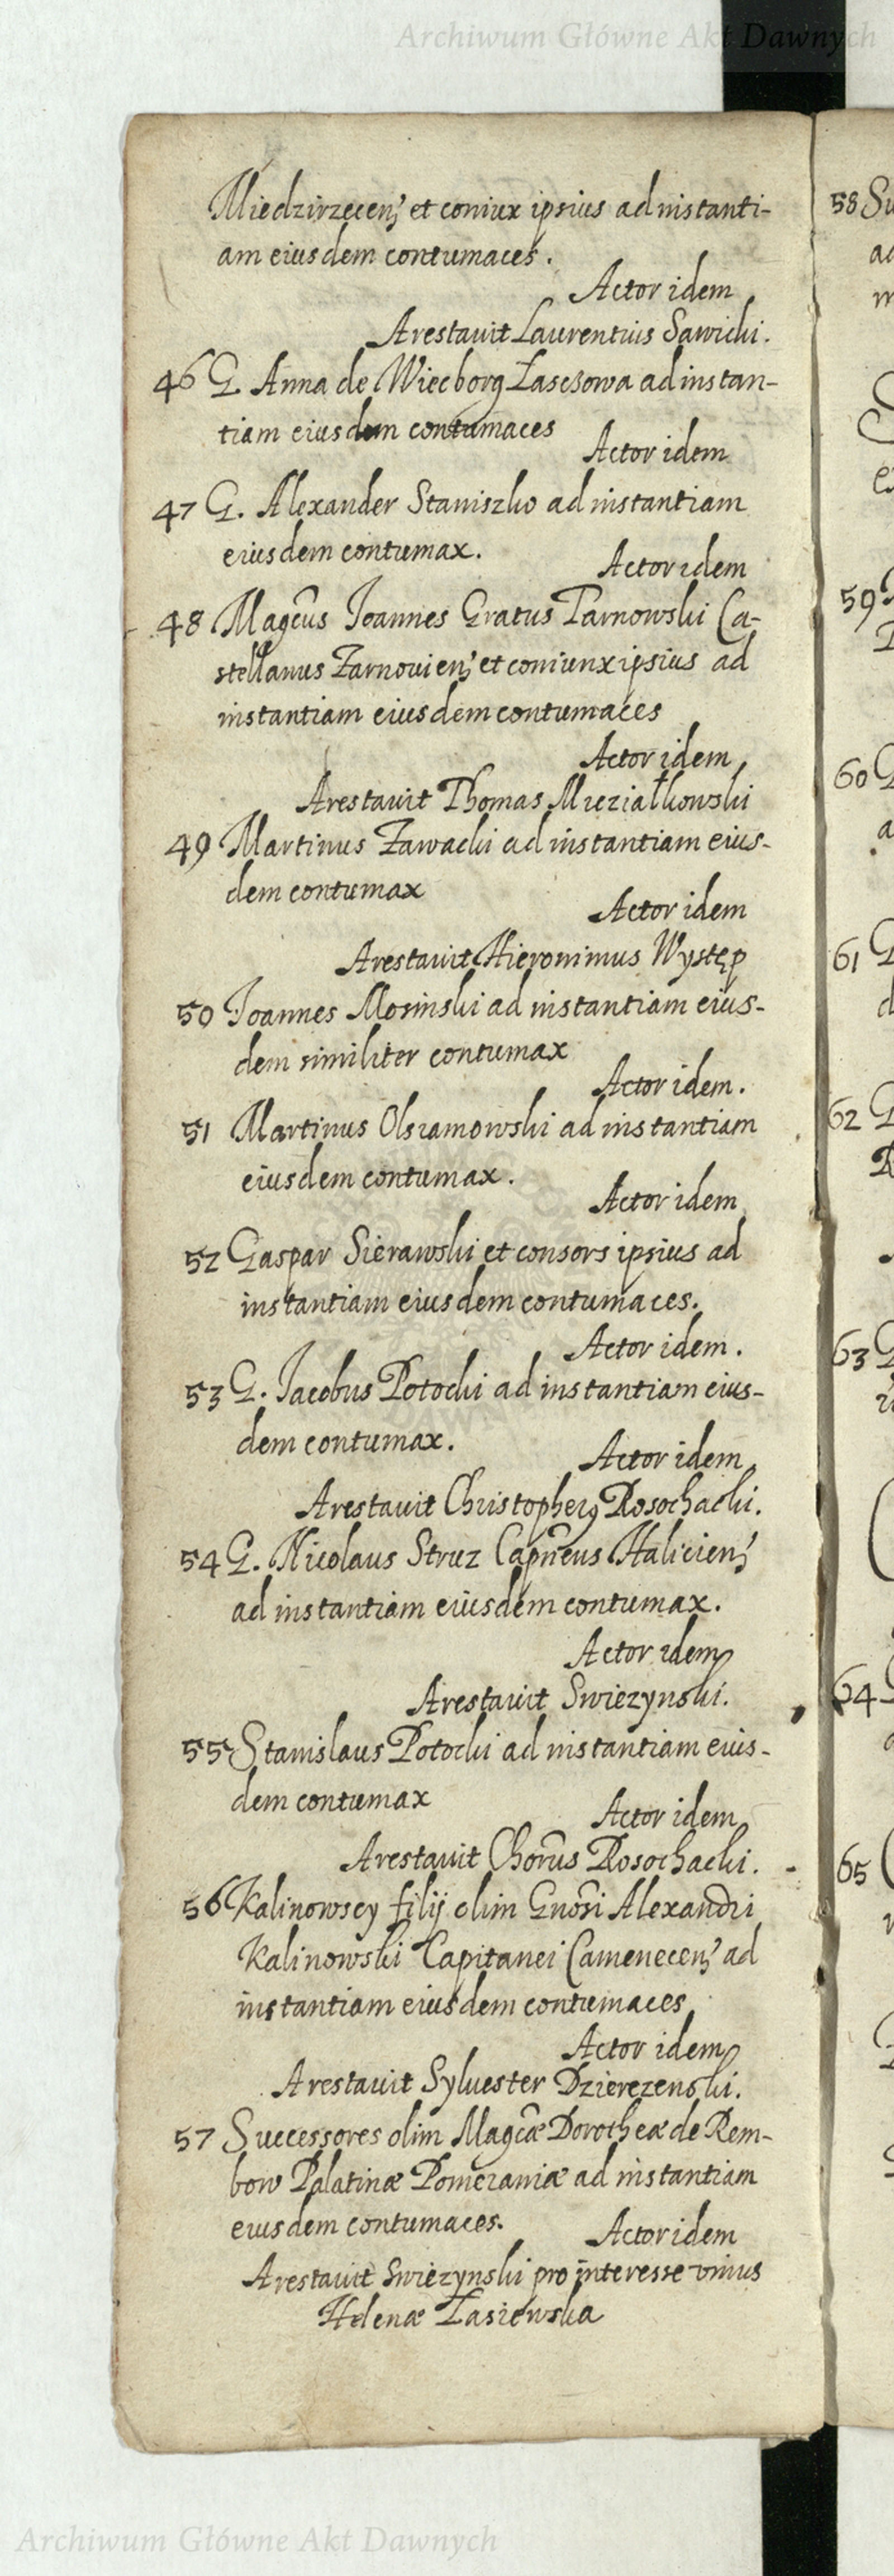 Archiwum Główne Akt Dawnych
Miedzirzecen̄ et coniux ipsius ad instanti-
am eiusdem contumaces.
Actor idem
Arestauit Laurentius Sawicki.
46 G. Anna de Wiecborg Łasczowa ad instan-
tiam eiusdem contumaces
Actor idem
47 G. Alexander Staniszko ad instantiam
eiusdem contumax.
Actor idem
48 Magcus Ioannes Gratus Tarnowski Ca-
stellanus Żarnouien̄ et coniunx ipsius ad
instantiam eiusdem contumaces
Actor idem
Arestauit Thomas Miziałkowski
49 Martinus Zawacki ad instantiam eius-
dem contumax
Actor idem
Arestauit Hieronimus Występ
50 Ioannes Mosinski ad instantiam eius-
dem similiter contumax
Actor idem.
51 Martinus Olszamowski ad instantiam
eiusdem contumax.
Actor idem
52 Gaspar Sierawski et consors ipsius ad
instantiam eiusdem contumaces.
Actor idem.
53 G. Iacobus Potocki ad instantiam eius-
dem contumax.
Actor idem
Arestauit Christopherꝰ Rosochacki.
54 G. Nicolaus Struz Capneus Halicien̄
ad instantiam eiusdem contumax.
Actor idem
Arestauit Swiezynski.
55 Stanislaus Potocki ad instantiam eius-
dem contumax
Actor idem
Arestauit Chorus Rosochacki.
56 Kalinowscy filij olim Gnosi Alexandri
Kalinowski Capitanei Camenecen̄ ad
instantiam eiusdem contumaces
Actor idem
Arestauit Syluester Dzierezenski.
57 Successores olim Magcæ Dorotheæ de Rem-
bow Palatinæ Pomeraniæ ad instantiam
eiusdem contumaces.
Actor idem
Arestauit Swiezynski pro interesse vnius
Helenæ Łasiewska
58
59
60
61
62
63
64
65
Archiwum Główne Akt Dawnych